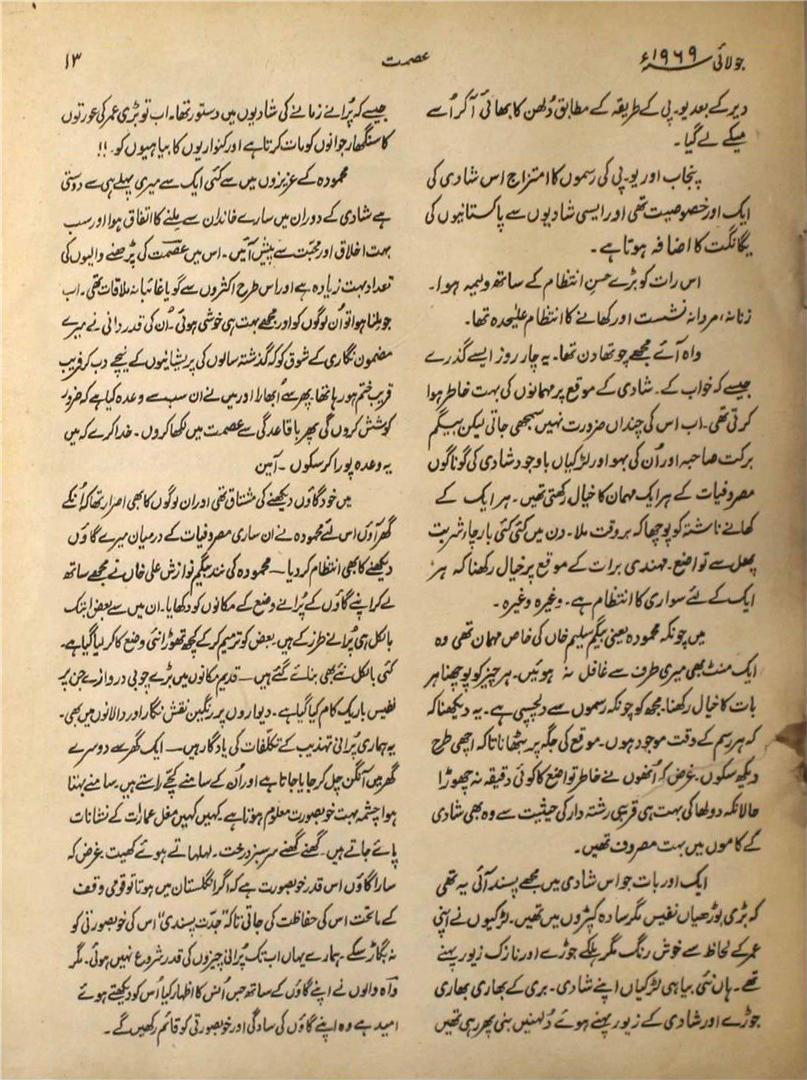 جولائی ۱۹۶۹ء
عصمت
۱۳
دیر کے بعد یو۔پی کے طریقہ کے مطابق دُلھن کا بھائی آکر اُسے
میکے لے گیا۔
پنجاب اور یو۔پی کی رسموں کا امتزاج اس شادی کی
ایک اور خصوصیت تھی اور ایسی شادیوں سے پاکستانیوں کی
یگانگت کا اضافہ ہوتا ہے۔
اس رات کو بڑے حسنِ انتظام کے ساتھ ولیمہ ہوا۔
زنانہ، مردانہ نشست اور کھانے کا انتظام علیٰحدہ تھا۔
واہ آئے مجھے چوتھا دن تھا۔ یہ چار روز ایسے گذرے
جیسے کہ خواب کے۔ شادی کے موقع پر مہمانوں کی بہت خاطر ہوا
کرتی تھی۔ اب اس کی چنداں ضرورت نہیں سمجھی جاتی لیکن بیگم
برکت صاحبہ اور اُن کی بہو اور لڑکیاں باوجود شادی کی گوناگوں
مصروفیات کے ہر ایک مہمان کا خیال رکھتی تھیں۔ ہر ایک کے
کھانے ناشتہ کو پوچھا کہ بروقت ملا۔ دن میں کئی کئی بار چاء شربت
پھل سے تواضع۔ مہندی برات کے موقع پر خیال رکھنا کہ ہر
ایک کے لئے سواری کا انتظام ہے۔ وغیرہ وغیرہ۔
میں چونکہ محمودہ یعنی بیگم سلیم خاں کی خاص مہمان تھی وہ
ایک منٹ بھی میری طرف سے غافل نہ ہوئیں۔ ہر چیز کو پوچھنا ہر
بات کا خیال رکھنا۔ مجھ کو چونکہ رسموں سے دلچسپی ہے۔ یہ دیکھنا کہ
کہ ہر رسم کے وقت موجود ہوں۔ موقع کی جگہ پر بٹھانا تاکہ اچھی طرح
دیکھ سکوں۔ غرض کہ اُنھوں نے خاطر تواضع کا کوئی دقیقہ نہ چھوڑا
حالانکہ دولھا کی بہت ہی قریبی رشتہ دار کی حیثیت سے وہ بھی شادی
کے کاموں میں بہت مصروف تھیں۔
ایک اور بات جو اس شادی میں مجھے پسند آئی یہ تھی
کہ بڑی بوڑھیاں نفیس مگر سادہ کپڑوں میں تھیں۔ لڑکیوں نے اپنی
عمر کے لحاظ سے خوش رنگ مگر ہلکے جوڑے اور نازک زیور پہنے
تھے۔ ہاں نئی بیاہی لڑکیاں اپنے شادی۔ بری کے بھاری بھاری
جوڑے اور شادی کے زیور پہنے ہوئے دُلہنیں بنی پھر رہی تھیں
جیسے کہ پُرانے زمانے کی شادیوں میں دستور تھا۔ اب تو بڑی عمر کی عورتوں
کا سنگھار جوانوں کو مات کرتا ہے اور کنواریوں کا بیاہیوں کو۔!!
محمودہ کے عزیزوں میں سے کئی ایک سے میری پہلے ہی سے دوستی
ہے شادی کے دوران میں سارے خاندان سے ملنے کا اتفاق ہوا اور سب
بہت اخلاق اور محبّت سے پیش آئیں۔ اس میں عصمت کی پڑھنے والیوں کی
تعداد بہت زیادہ ہے اور اس طرح اکثروں سے گویا غائبانہ ملاقات تھی۔ اب
جو ملنا ہوا تو اُن لوگوں کو اور مجھے بہت ہی خوشی ہوئی۔ اُن کی قدردانی نے میرے
مضمون نگاری کے شوق کو کہ گذشتہ سالوں کی پریشانیوں کے نیچے دب کر قریب
قریب ختم ہو رہا تھا۔ پھر سے اُبھارا اور میں نے ان سب سے وعدہ کیا ہے کہ ضرور
کوشش کروں گی پھر باقاعدگی سے عصمت میں لکھا کروں۔ خدا کرے کہ میں
یہ وعدہ پورا کر سکوں۔ آمین
میں خود گاؤں دیکھنے کی مشتاق تھی اور ان لوگوں کا بھی اصرار تھا کہ اُنکے
گھر آؤں اس لئے محمودہ نے ان ساری مصروفیات کے درمیان میرے گاؤں
دیکھنے کا بھی انتظام کر دیا۔ محمودہ کی نند بیگم نوازش علی خاں نے مجھے ساتھ
لے کر اپنے گاؤں کے پُرانے وضع کے مکانوں کو دکھایا۔ ان میں سے بعض ابتک
بالکل ہی پُرانے طرز کے ہیں۔ بعض کو ترمیم کر کے کچھ تھوڑا نئی وضع کا کر لیا گیا ہے۔
کئی بالکل نئے بھی بنائے گئے ہیں۔ قدیم مکانوں میں بڑے چوبی دروازے جن پر
نفیس باریک کام کیا گیا ہے۔ دیواروں پر رنگین نقش و نگار اور دالانوں میں بھی۔
یہ ہماری پُرانی تہذیب کے تکلّفات کی یادگار ہیں۔ ایک گھر سے دوسرے
گھر میں آنگن چل کر جایا جاتا ہے اور اُن کے سامنے کچے راستے ہیں۔ سامنے بہتا
ہوا چشمہ بہت خوبصورت معلوم ہوتا ہے کہیں کہیں مغل عمارات کے نشانات
پائے جاتے ہیں۔ گھنے گھنے سرسبز درخت۔ لہلہاتے ہوئے کھیت۔ غرض کہ
سارا گاؤں اس قدر خوبصورت ہے کہ اگر انگلستان میں ہوتا تو قومی وقف
کے ماتحت اس کی حفاظت کی جاتی تاکہ "جدّت پسندی" اس کی خوبصورتی کو
نہ بگاڑ سکے۔ ہمارے یہاں اب تک پُرانی چیزوں کی قدر شروع نہیں ہوئی۔ مگر
واہ والوں نے اپنے گاؤں کے ساتھ جس اُنس کا اظہار کیا اُس کو دیکھتے ہوئے
امید ہے وہ اپنے گاؤں کی سادگی اور خوبصورتی کو قائم رکھیں گے۔